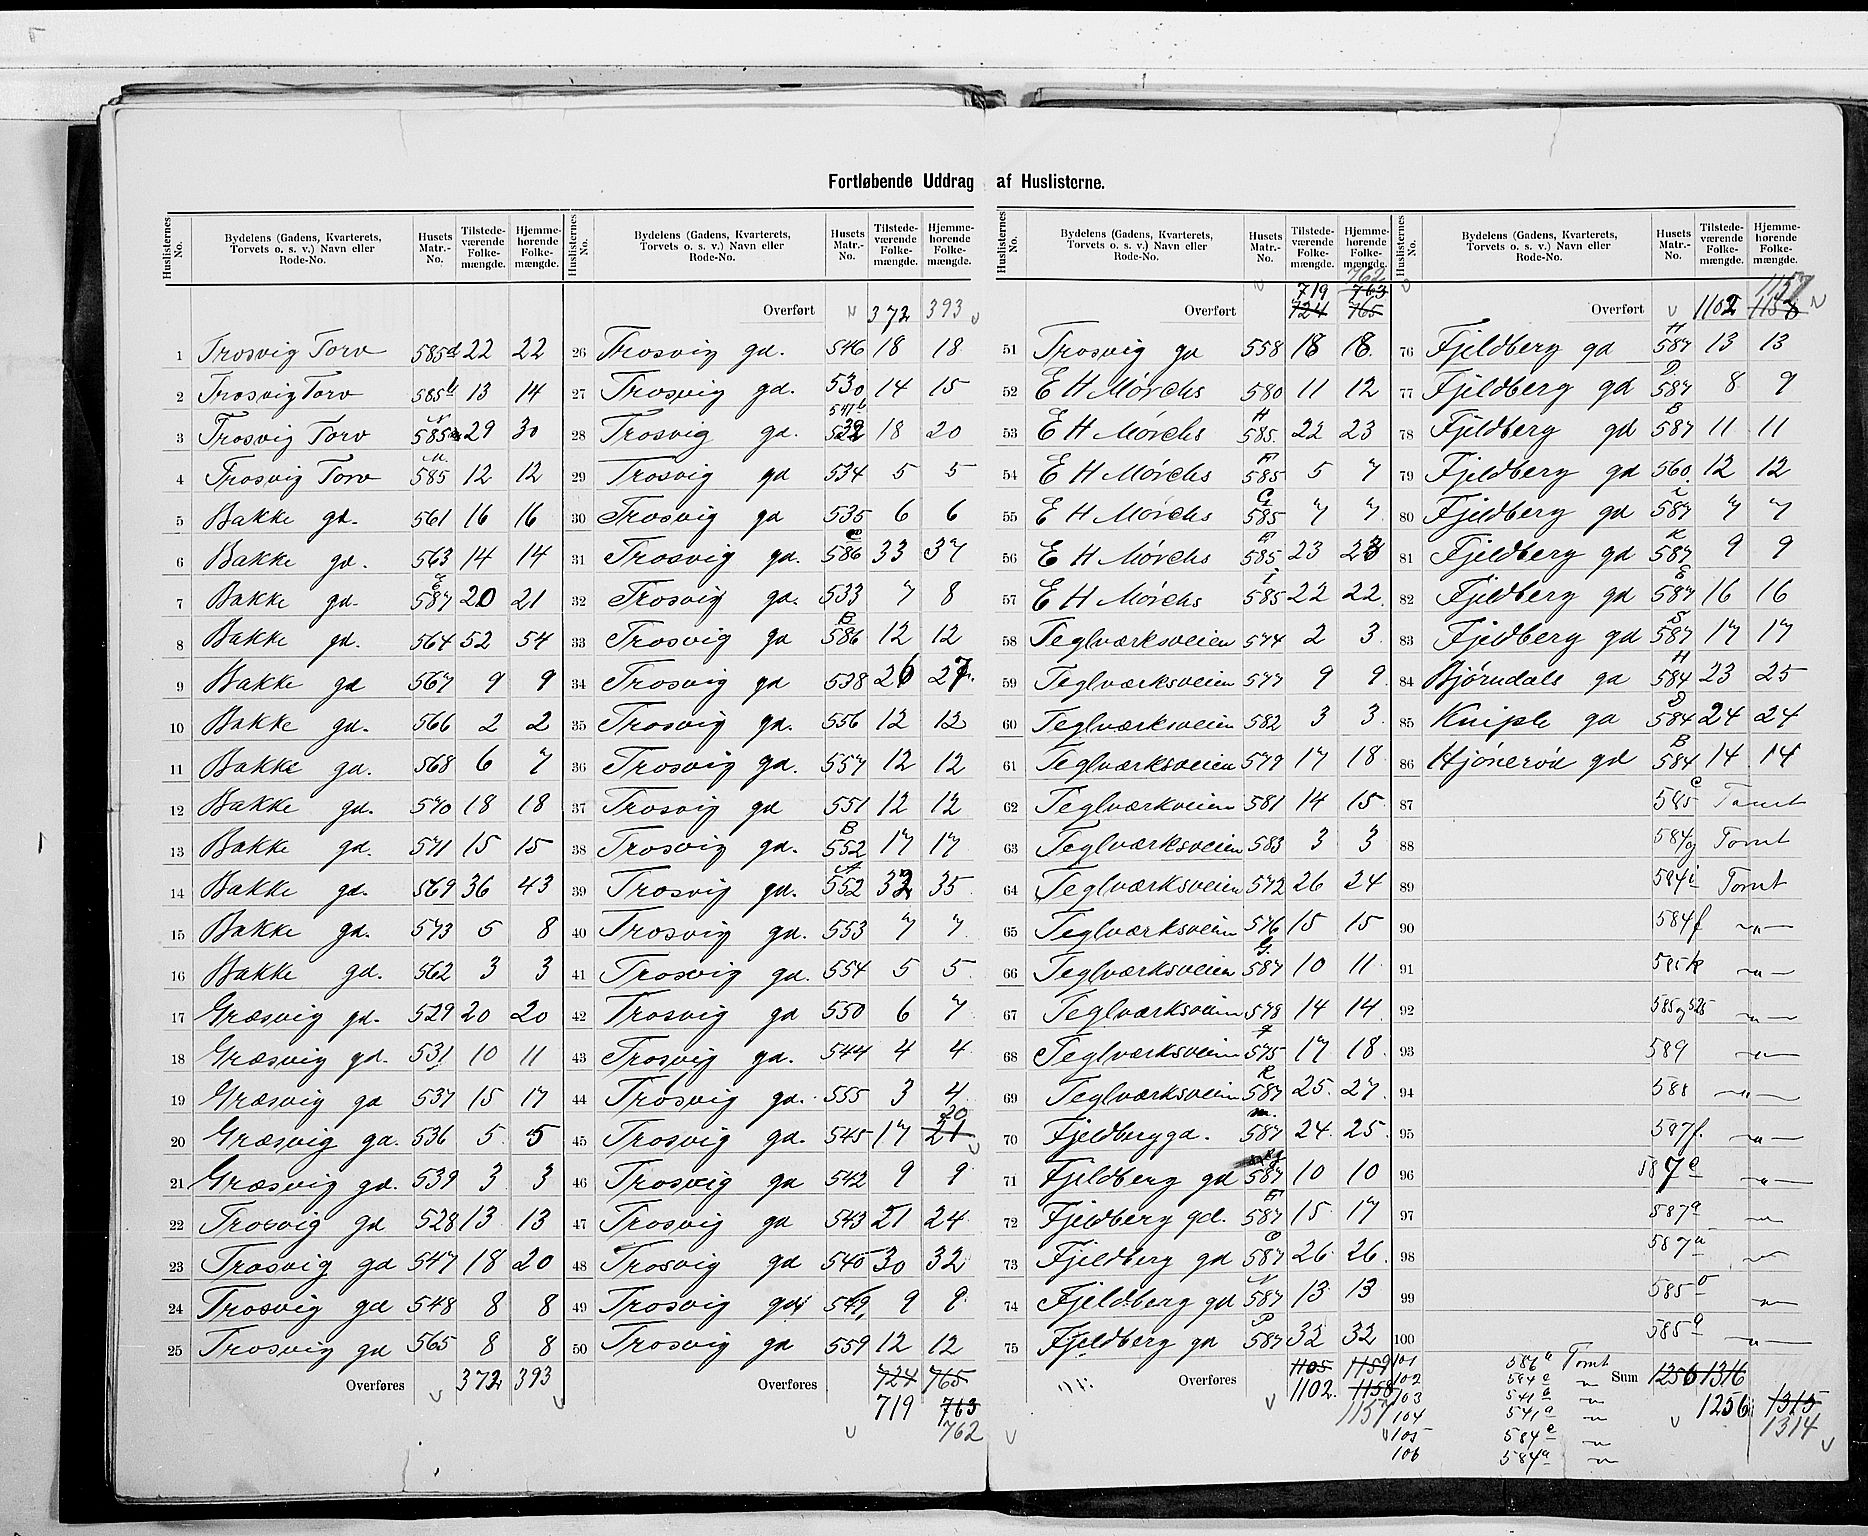 Fortløbende Uddrag af Huslisterne.
Huslisternes No. | Bydelens (Gadens, Kvarterets, Torvets o. s. v.) Navn eller Rode-No. | Husets Matr.-No. | Tilstedeværende Folkemængde. | Hjemmehørende Folkemængde.
1 Trosvig Torv 585d 22 22
2 Trosvig Torv 585b 13 14
3 Trosvig Torv 585 29 30
4 Trosvig Torv 585 12 12
5 Bakke gd. 561 16 16
6 Bakke gd. 563 14 14
7 Bakke gd. 587 20 21
8 Bakke gd. 564 52 54
9 Bakke gd 567 9 9
10 Bakke gd. 566 2 2
11 Bakke gd. 568 6 7
12 Bakke gd. 570 18 18
13 Bakke gd. 571 15 15
14 Bakke gd. 569 36 43
15 Bakke gd. 573 5 8
16 Bakke gd. 562 3 3
17 Græsvig gd. 529 20 20
18 Græsvig gd. 531 10 11
19 Græsvig gd 537 15 17
20 Græsvig gd. 536 5 5
21 Græsvig gd. 539 3 3
22 Trosvig gd 528 13 13
23 Trosvig gd 547 18 20
24 Trosvig gd 548 8 8
25 Trosvig gd 565 8 8
Overføres 372 393
Huslisternes No. | Bydelens (Gadens, Kvarterets, Torvets o. s. v.) Navn eller Rode-No. | Husets Matr.-No. | Tilstedeværende Folkemængde. | Hjemmehørende Folkemængde.
Overført 372 393
26 Trosvig gd. 546 18 18
27 Trosvig gd. 530 14 15
28 Trosvig gd. 18 20
29 Trosvig gd 534 5 5
30 Trosvig gd 535 6 6
31 Trosvig gd. 586 e 33 37
32 Trosvig gd. 533 7 8
33 Trosvig gd 586 B 12 12
34 Trosvig gd 538 26 27
35 Trosvig gd. 556 12 12
36 Trosvig gd. 557 12 12
37 Trosvig gd 551 12 12
38 Trosvig gd. 552 B 17 17
39 Trosvig gd. 552 A 32 35
40 Trosvig gd. 553 7 7
41 Trosvig gd. 554 5 5
42 Trosvig gd 550 6 7
43 Trosvig gd. 544 4 4
44 Trosvig gd. 555 3 4
45 Trosvig gd. 545 17 21 20
46 Trosvig gd 542 9 9
47 Trosvig gd 543 21 24
48 Trosvig gd 540 30 32
49 Trosvig gd 549 9 9
50 Trosvig gd 559 12 12
Overføres 724 765
719 763
762
Huslisternes No. | Bydelens (Gadens, Kvarterets, Torvets o. s. v.) Navn eller Rode-No. | Husets Matr.-No. | Tilstedeværende Folkemængde. | Hjemmehørende Folkemængde.
762
719 763
Overført 724 765
51 Trosvig gd 558 18 18
52 E H Mørchs 580 11 12
53 E H Mørchs 585 H 22 23
54 E H Mørchs 585 5 7
55 E H Mørchs 585 G 7 7
56 E H Mørchs 585 23 23
57 E H Mørchs 585 i 22 22
58 Teglværksveien 574 2 3
59 Teglværksveien 577 9 9
60 Teglværksveien 582 3 3
61 Teglværksveien 579 17 18
62 Teglværkveien 581 14 15
63 Teglværksveien 583 3 3
64 Teglværksveien 572 26 24
65 Teglværksveien 576 15 15
66 Teglværksveien 587 G. 10 11
67 Teglværksveien 578 14 14
68 Teglværksveien 575 17 18
69 Teglværksveien 587 R 25 27
70 Fjeldberg gd. 587 m. 24 25
71 Fjeldberg gd 587 10 10
72 Fjeldberg gd. 587 15 17
73 Fjeldberg gd 587 26 26
74 Fjeldberg gd 587 N 13 13
75 Fjeldberg gd 587 P 32 32
Overføres 1105 1159
1102 1158
1157
Huslisternes No. | Bydelens (Gadens, Kvarterets, Torvets o. s. v.) Navn eller Rode-No. | Husets Matr.-No. | Tilstedeværende Folkemængde. | Hjemmehørende Folkemængde.
1157
Overført 1102 1158
76 Fjeldberg gd 587 H 13 13
77 Fjeldberg gd 587 D. 8 9
78 Fjeldberg gd 587 B 11 11
79 Fjeldberg gd 560 12 12
80 Fjeldberg gd 587 7 7
81 Fjeldberg gd 587 K 9 9
82 Fjeldberg gd 587 16 16
83 Fjeldberg gd 587 17 17
84 Bjørndals gd 584 H 23 25
85 Kniple gd 584 D 24 24
86 584 B 14 14
87 585 c Tomt
88 584g Tomt
89 584i Tomt
90 584f —"—
91 585k —"—
92 —"—
93 589 —"—
94 588 —"—
95 587f. —"—
96 587e —"—
97 587a —"—
98 —"—
99 585o —"—
100 585q —"—
101 586a Tomt
102 584e "
103 541b "
104 541a "
105 584c "
106 584a "
Sum 1256 1316
1256 1315
1314